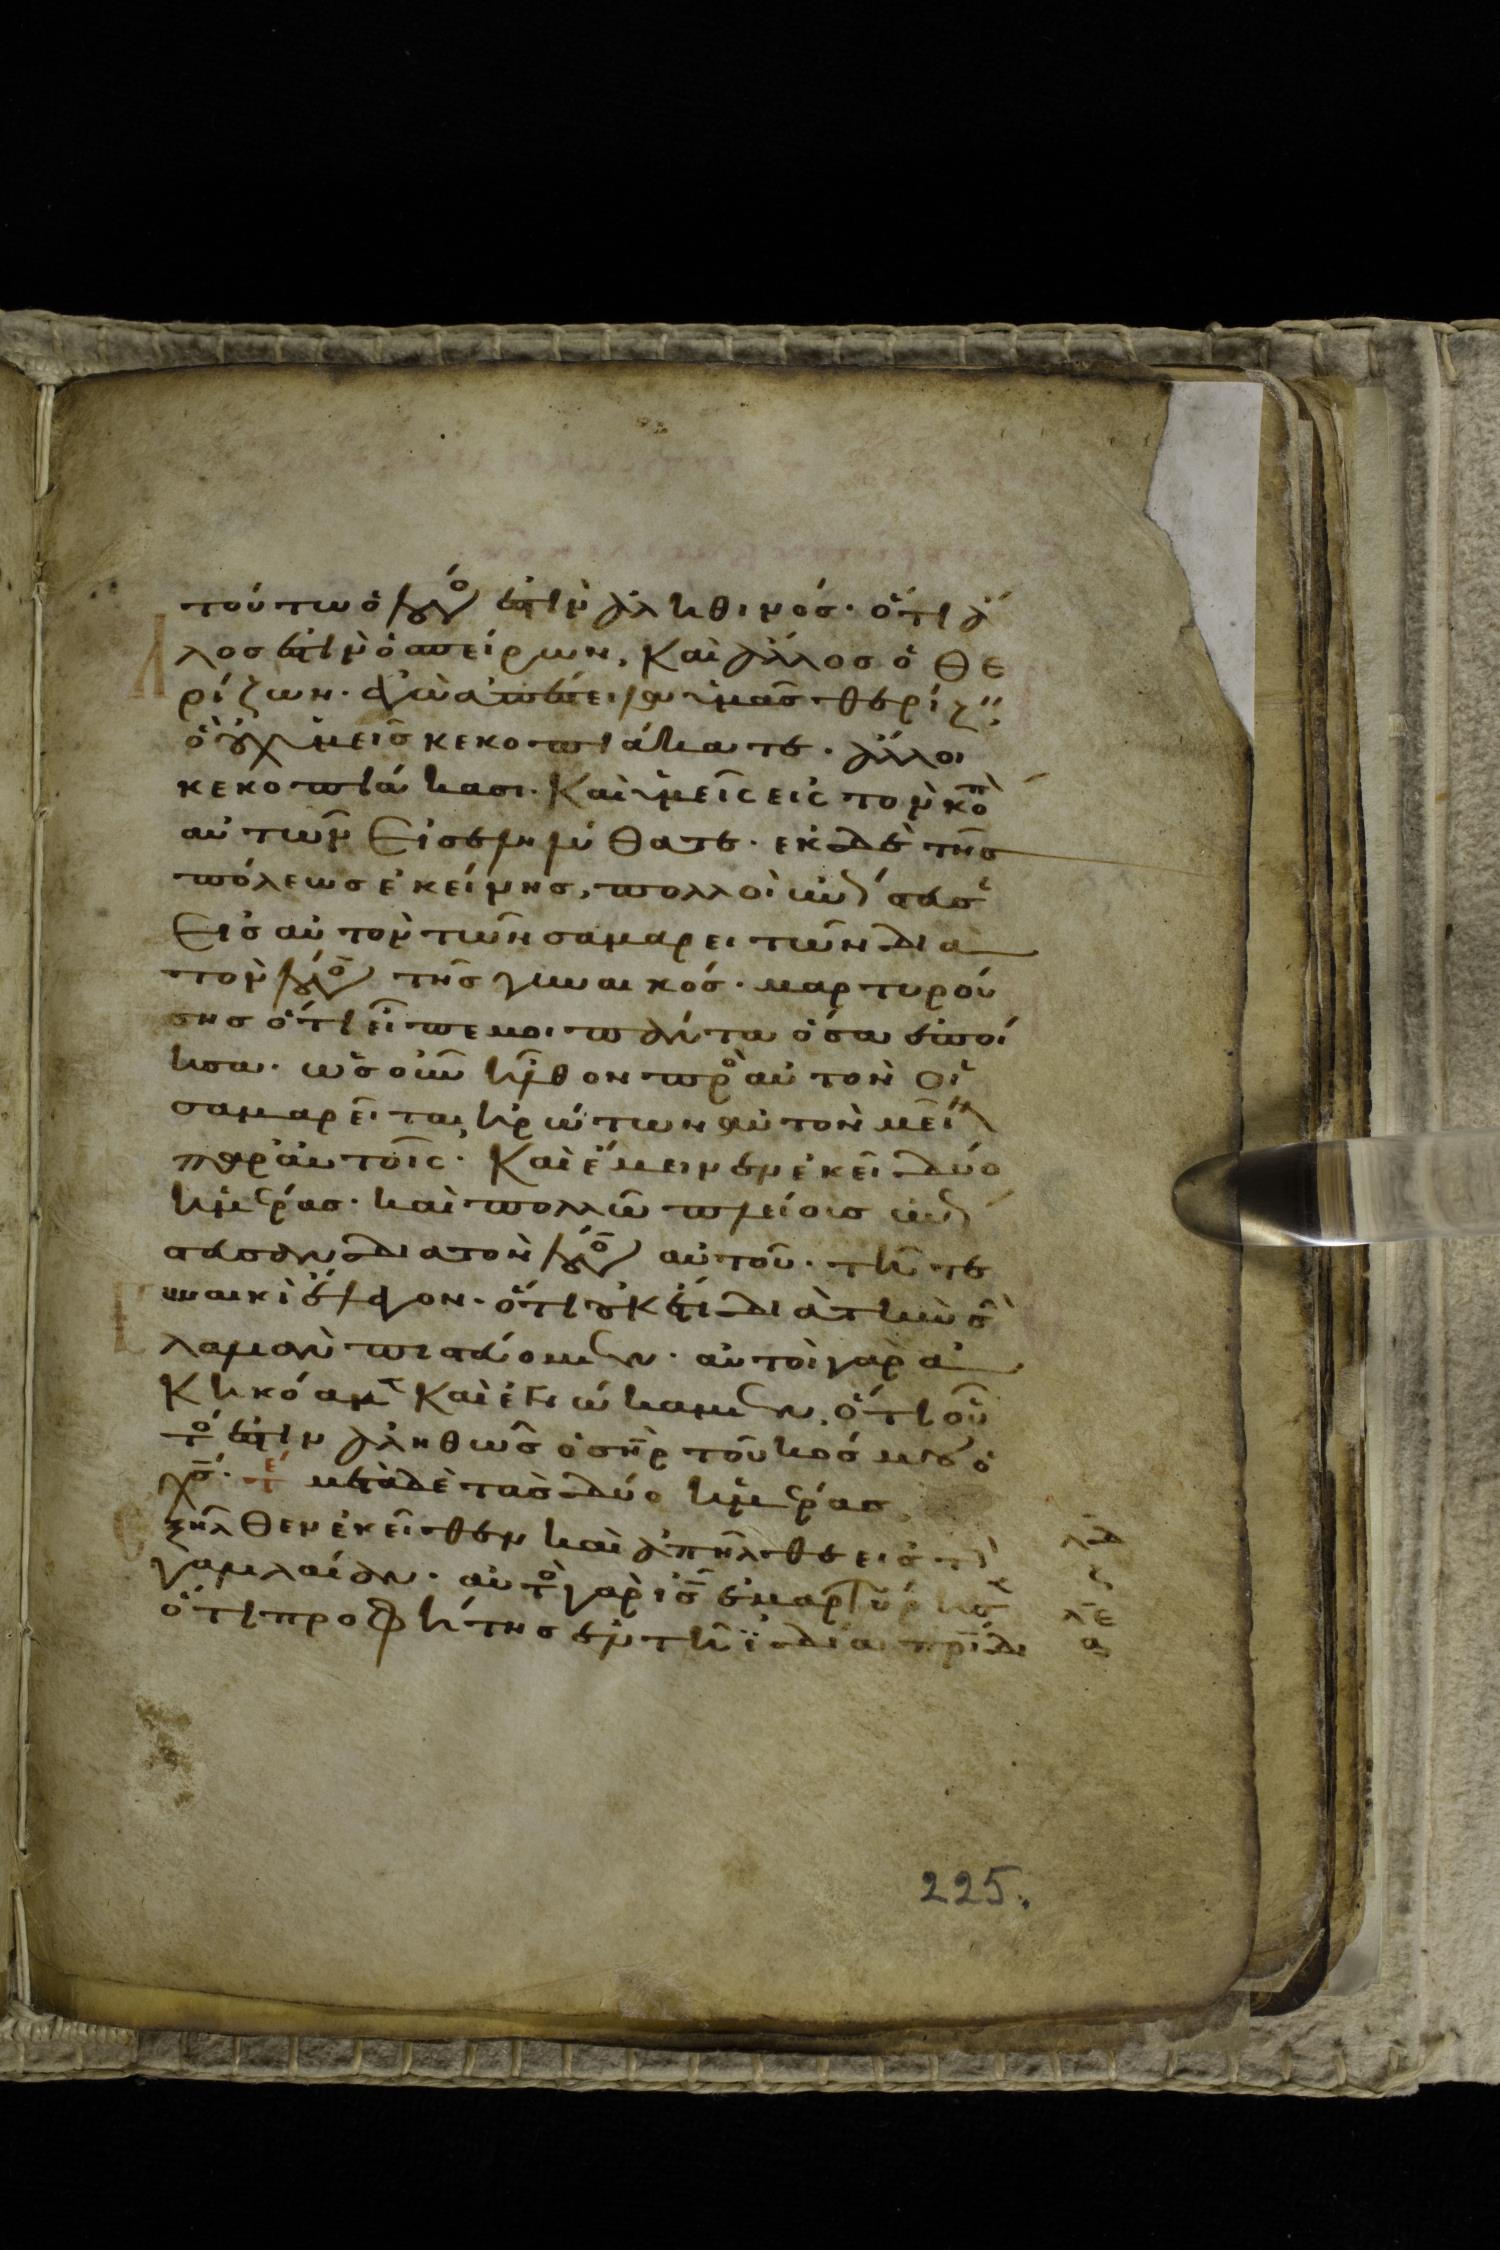 τούτω ὁ λόγο ἐστὶν ἀληθινός· ὅτι ἄλ
λος ἐστὶν ὁ σπείρων, Καὶ ἄλλος ὁ θε
ρίζων· ἐγὼ ἀπέστειλα ὑμᾶς θερίζειν
ὃ οὐχ ὑμεῖς κεκοπιάκατε· ἄλλοι
κεκοπιάκασι· Καὶ ὑμεῖς εἰς τὸν κόπ
αὐτῶν Εἰσεληλύθατε· ἐκ δὲ τῆς
πόλεως ἐκείνης, πολλοὶ ἐπίστευσ
Εἰς αὐτὸν τῶν σαμαρειτῶν δια
τὸν λόγο τῆς γυναικός· μαρτυρού
σης ὅτι εἶπε μοι πάντα ὅσα ἐποί
ησα· ὡς οὖν ἦλθον προ αὐτὸν οἱ
σαμαρεῖται, ἠρώτων αὐτὸν μεῖν
παρ' αὐτοῖς· Καὶ ἔμεινεν ἐκεῖ δύο
ἡμέρας· καὶ πολλῶ πλείους ἐπί
στευσαν δια τὸν λόγο αὐτοῦ· τῆ τε
γυναικὶ ἔλεγον· ὅτι οὐκέτι διὰ τὴν σὴ
λαλιὰν πιστεύομεν· αὐτοὶ γὰρ ἀ
Κηκόαμεν Καὶ ἐγνώκαμεν, ὅτι οὗ
το ἐστὶν ἀληθῶς ὁ σηρ τοῦ κόσμου ὁ
χς· μετὰ δὲ τὰς δύο ἡμέρας
ξῆλθεν ἐκεῖθεν καὶ ἀπῆλθε εἰς τὴ
γαλιλαίαν· αὐτο γὰρ ις ἐμαρτύρησ
ὅτι προφήτης ἐν τῆ ϊδία πρίδι
λδ
ϛ
λε
α
225.